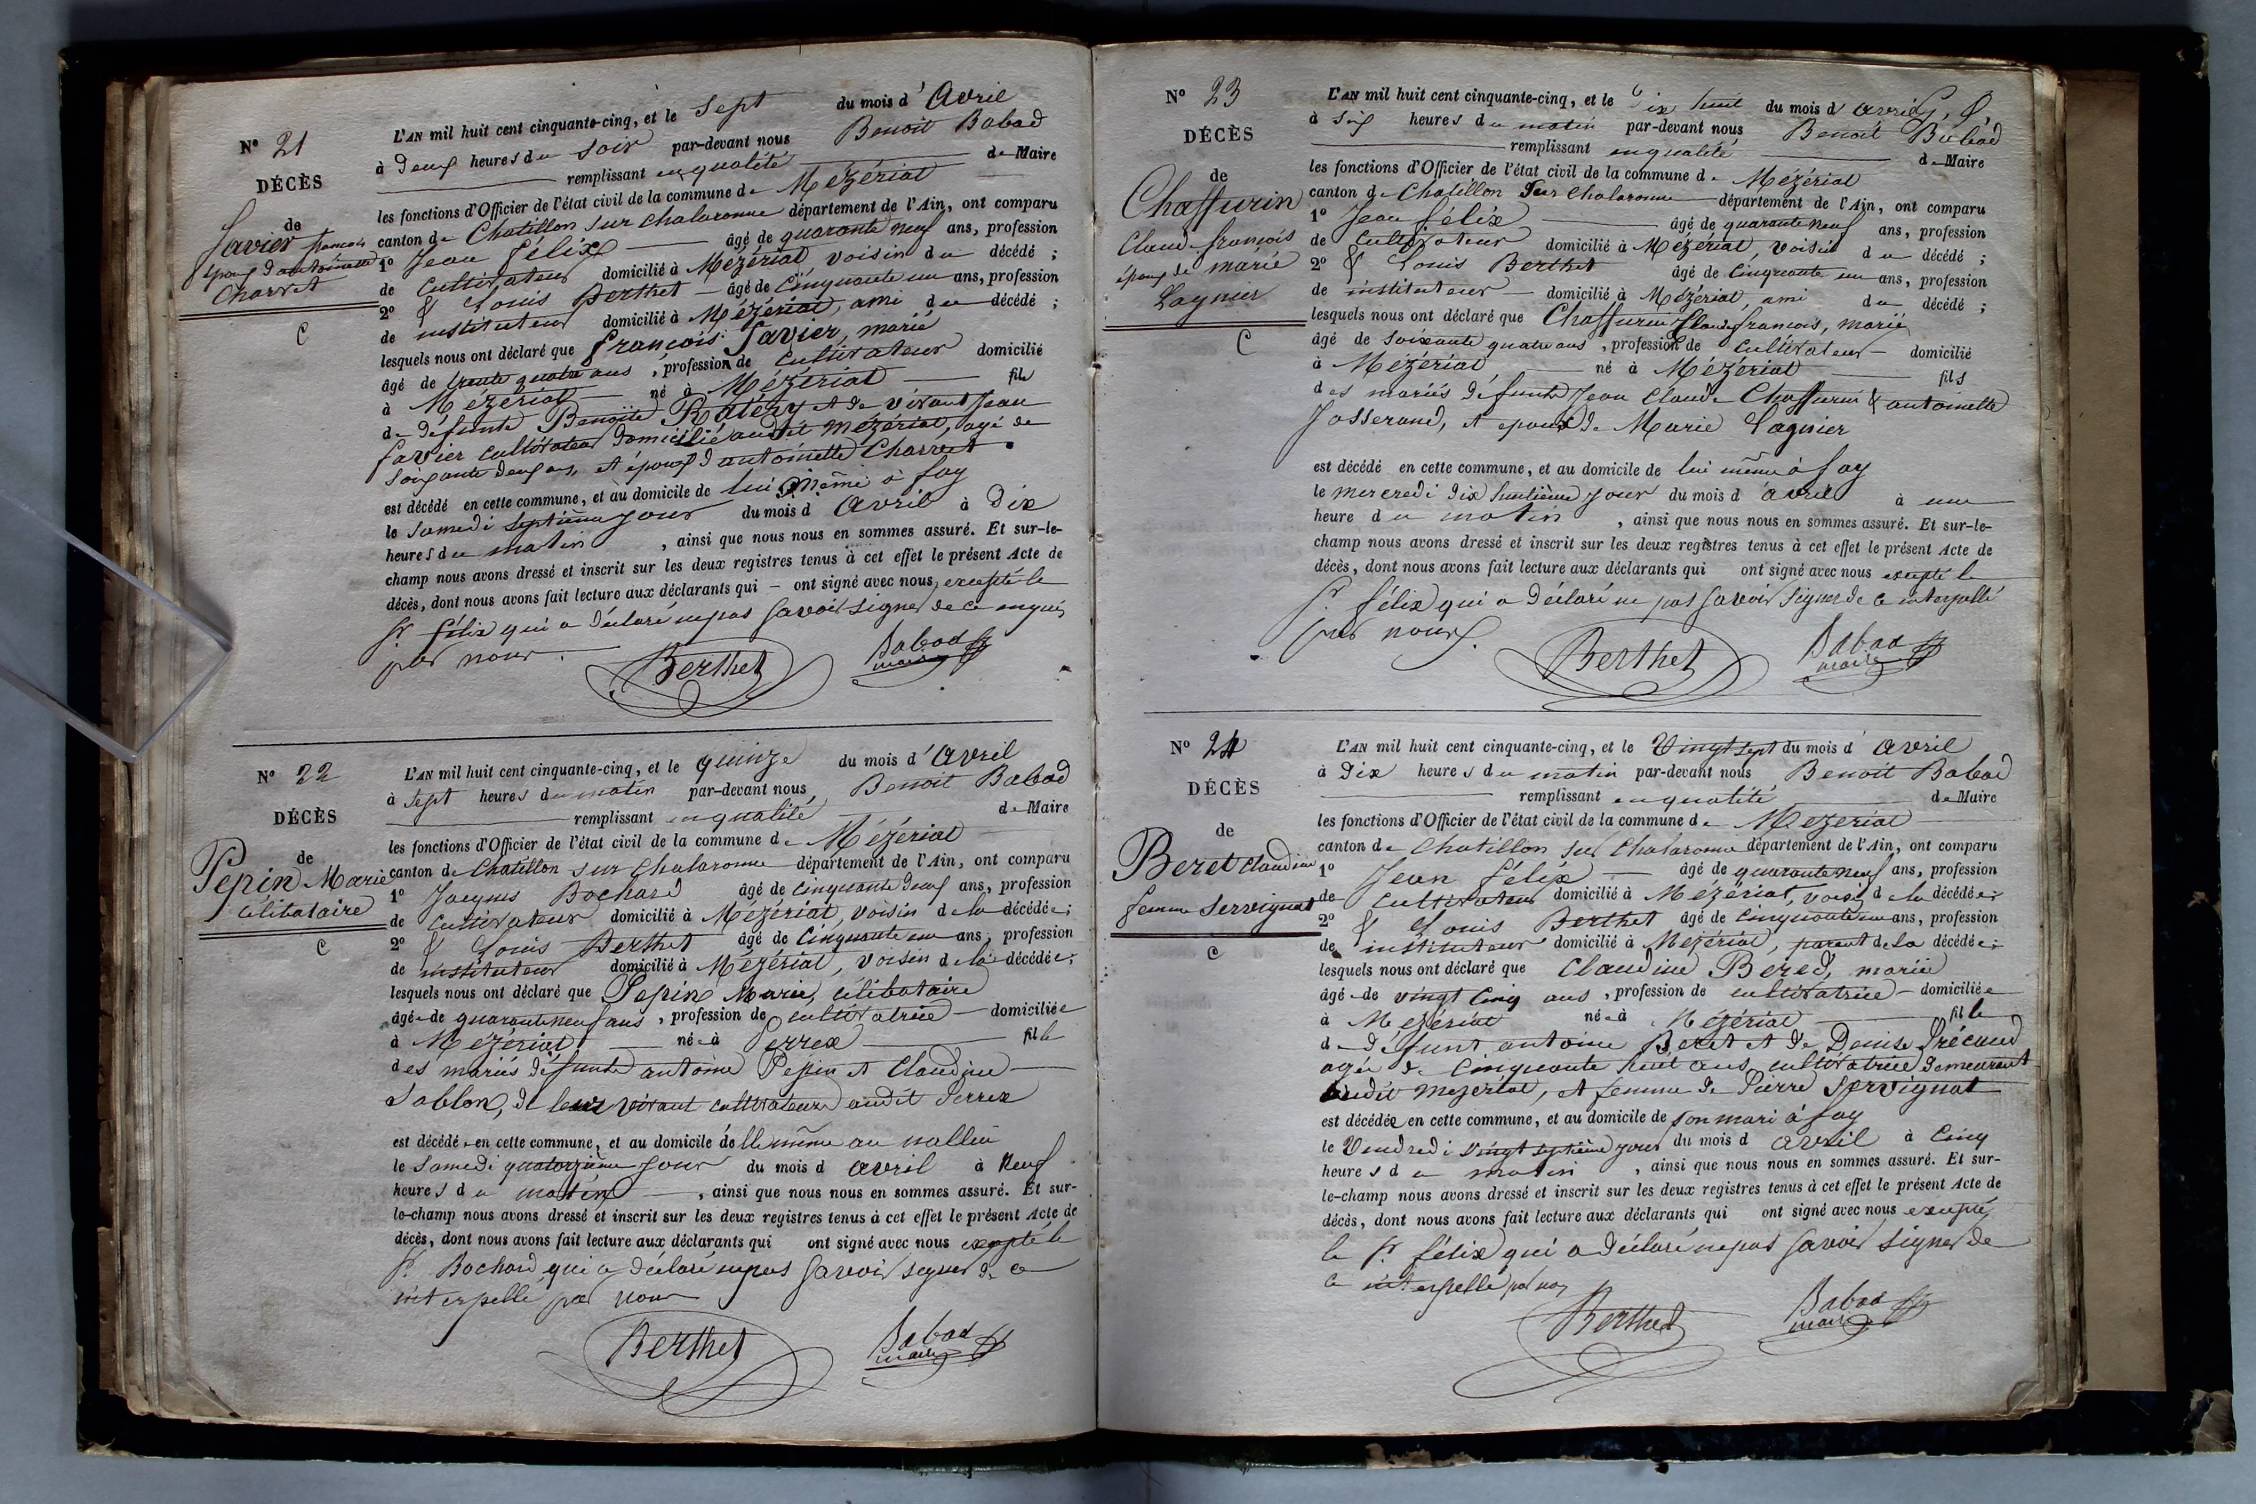 N° 21
DÉCÈS
de
Favier françois
époux d'antoinette
Charvet
C
L'AN mil huit cent cinquante-cinq, et le sept du mois d'Avril
à deux heures du soir par-devant nous Benoit Babad
remplissant en qualité de Maire
les fonctions d'Officier de l'état civil de la commune de Mézériat
canton de Chatillon sur Chalaronne département de l'Ain, ont comparu
1° Jean félix âgé de quarante neuf ans, profession
de cultivateur domicilié à Mézériat voisin du décédé ;
2° & Louis Berthet âgé de cinquante un ans, profession
de instituteur domicilié à Mézériat, ami du décédé ;
lesquels nous ont déclaré que françois favier, marié
âgé de trente quatre ans, profession de cultivateur domicilié
à Mézériat né à Mézériat fils
de défunte Benoite et de vivant Jean
favier cultivateur domicilié audit mézériat, agé de
soixante deux ans, et époux d'antoinette Charvet
est décédé en cette commune, et au domicile de lui même à fay
le samedi septième jour du mois d'Avril à Dix
heures du matin, ainsi que nous nous en sommes assuré. Et sur-le-
champ nous avons dressé et inscrit sur les deux registres tenus à cet effet le présent Acte de
décès, dont nous avons fait lecture aux déclarants qui — ont signé avec nous, excepté le
Sr. félix qui a déclaré ne pas savoir signer de ce enquis
par nous.
Berthet Babad
maire
N° 22
DÉCÈS
de
Pepin Marie
célibataire
C
L'AN mil huit cent cinquante-cinq, et le quinze du mois d'Avril
à sept heures du matin par-devant nous, Benoit Babad
remplissant en qualité de Maire
les fonctions d'Officier de l'état civil de la commune de Mézériat
canton de Chatillon sur Chalaronne département de l'Ain, ont comparu
1° Jacques Bochard âgé de cinquante deux ans, profession
de cultivateur domicilié à Mézériat, voisin de la décédée ;
2° & Louis Berthet âgé de Cinquante un ans, profession
de instituteur domicilié à Mézériat, voisin de la décédée ;
lesquels nous ont déclaré que Pepin Marie, célibataire
âgée de quarante neuf ans, profession de cultivatrice domiciliée
à Mézériat née à Perrex fille
des mariés défunts antoine Pepin et Claudine
Sablon, de leur vivant cultivateurs audit Perrex
est décédée en cette commune, et au domicile d'elle même au
le Samedi quatorzième jour du mois d'avril à Neuf
heures du matin, ainsi que nous nous en sommes assuré. Et sur-
le-champ nous avons dressé et inscrit sur les deux registres tenus à cet effet le présent Acte de
décès, dont nous avons fait lecture aux déclarants qui ont signé avec nous excepté le
Sr. Bochard qui a déclaré ne pas savoir signer de ce
interpellé par nous
Berthet Babad
maire
N° 23
DÉCÈS
de
Chaffurin
Claude françois
époux de marie
Lagnier
C
L'AN mil huit cent cinquante-cinq, et le Dix huit du mois d'avril
à six heures du matin par-devant nous Benoit Babad
remplissant en qualité de Maire
les fonctions d'Officier de l'état civil de la commune de Mézériat
canton de Chatillon sur Chalaronne département de l'Ain, ont comparu
1° Jean félix âgé de quarante neuf ans, profession
de cultivateur domicilié à Mézériat, voisin du décédé ;
2° & Louis Berthet âgé de cinquante un ans, profession
de instituteur domicilié à Mézériat, ami du décédé ;
lesquels nous ont déclaré que Chaffurin Claude françois, marié
âgé de soixante quatre ans, profession de cultivateur domicilié
à Mézériat, né à Mézériat fils
des mariés défunts Jean Claude Chaffurin & antoinette
Josserand, et epoux de Marie Lagnier
est décédé en cette commune, et au domicile de lui même à fay
le mercredi dix huitième jour du mois d'avril à une
heure du matin, ainsi que nous nous en sommes assuré. Et sur-le-
champ nous avons dressé et inscrit sur les deux registres tenus à cet effet le présent Acte de
décès, dont nous avons fait lecture aux déclarants qui ont signé avec nous excepté le
Sr. félix qui a déclaré ne pas savoir signer de ce interpellé
par nous.
Berthet Babad
maire
N° 24
DÉCÈS
de
Beret Claudine
femme Servignat
C
L'AN mil huit cent cinquante-cinq, et le Vingt sept du mois d'avril
à Dix heures du matin par-devant nous Benoit Babad
remplissant en qualité de Maire
les fonctions d'Officier de l'état civil de la commune de Mézériat
canton de Chatillon sur Chalaronne département de l'Ain, ont comparu
1° Jean félix âgé de quarante neuf ans, profession
de cultivateur domicilié à Mézériat, voisin de la décédée ;
2° & Louis Berthet âgé de cinquante un ans, profession
de instituteur domicilié à Mézériat, parent de la décédée ;
lesquels nous ont déclaré que Claudine Béred, mariée
âgée de vingt cinq ans, profession de cultivatrice domiciliée
à Mézériat née à Mézériat fille
de défunt antoine Beret et de Denise Frécaud
agée de cinquante huit ans, cultivatrice demeurant
audit mezeriat, et femme de Pierre Servignat
est décédée en cette commune, et au domicile de son mari à fay
le Vendredi vingt septième jour du mois d'avril à cinq
heures du matin, ainsi que nous nous en sommes assuré. Et sur-
le-champ nous avons dressé et inscrit sur les deux registres tenus à cet effet le présent Acte de
décès, dont nous avons fait lecture aux déclarants qui ont signé avec nous excepté
le Sr. félix qui a déclaré ne pas savoir signer de
ce interpellé par nous
Berthet Babad
maire